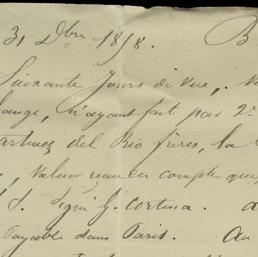 31 Dbre 1818. B
Soixante Jours de Vue, V
n'ayant fait par 2e
artinez del Rio frères, la
, valeur reçue en compte que
S. Signé J. Cortina. a
Payable dans Paris. Au